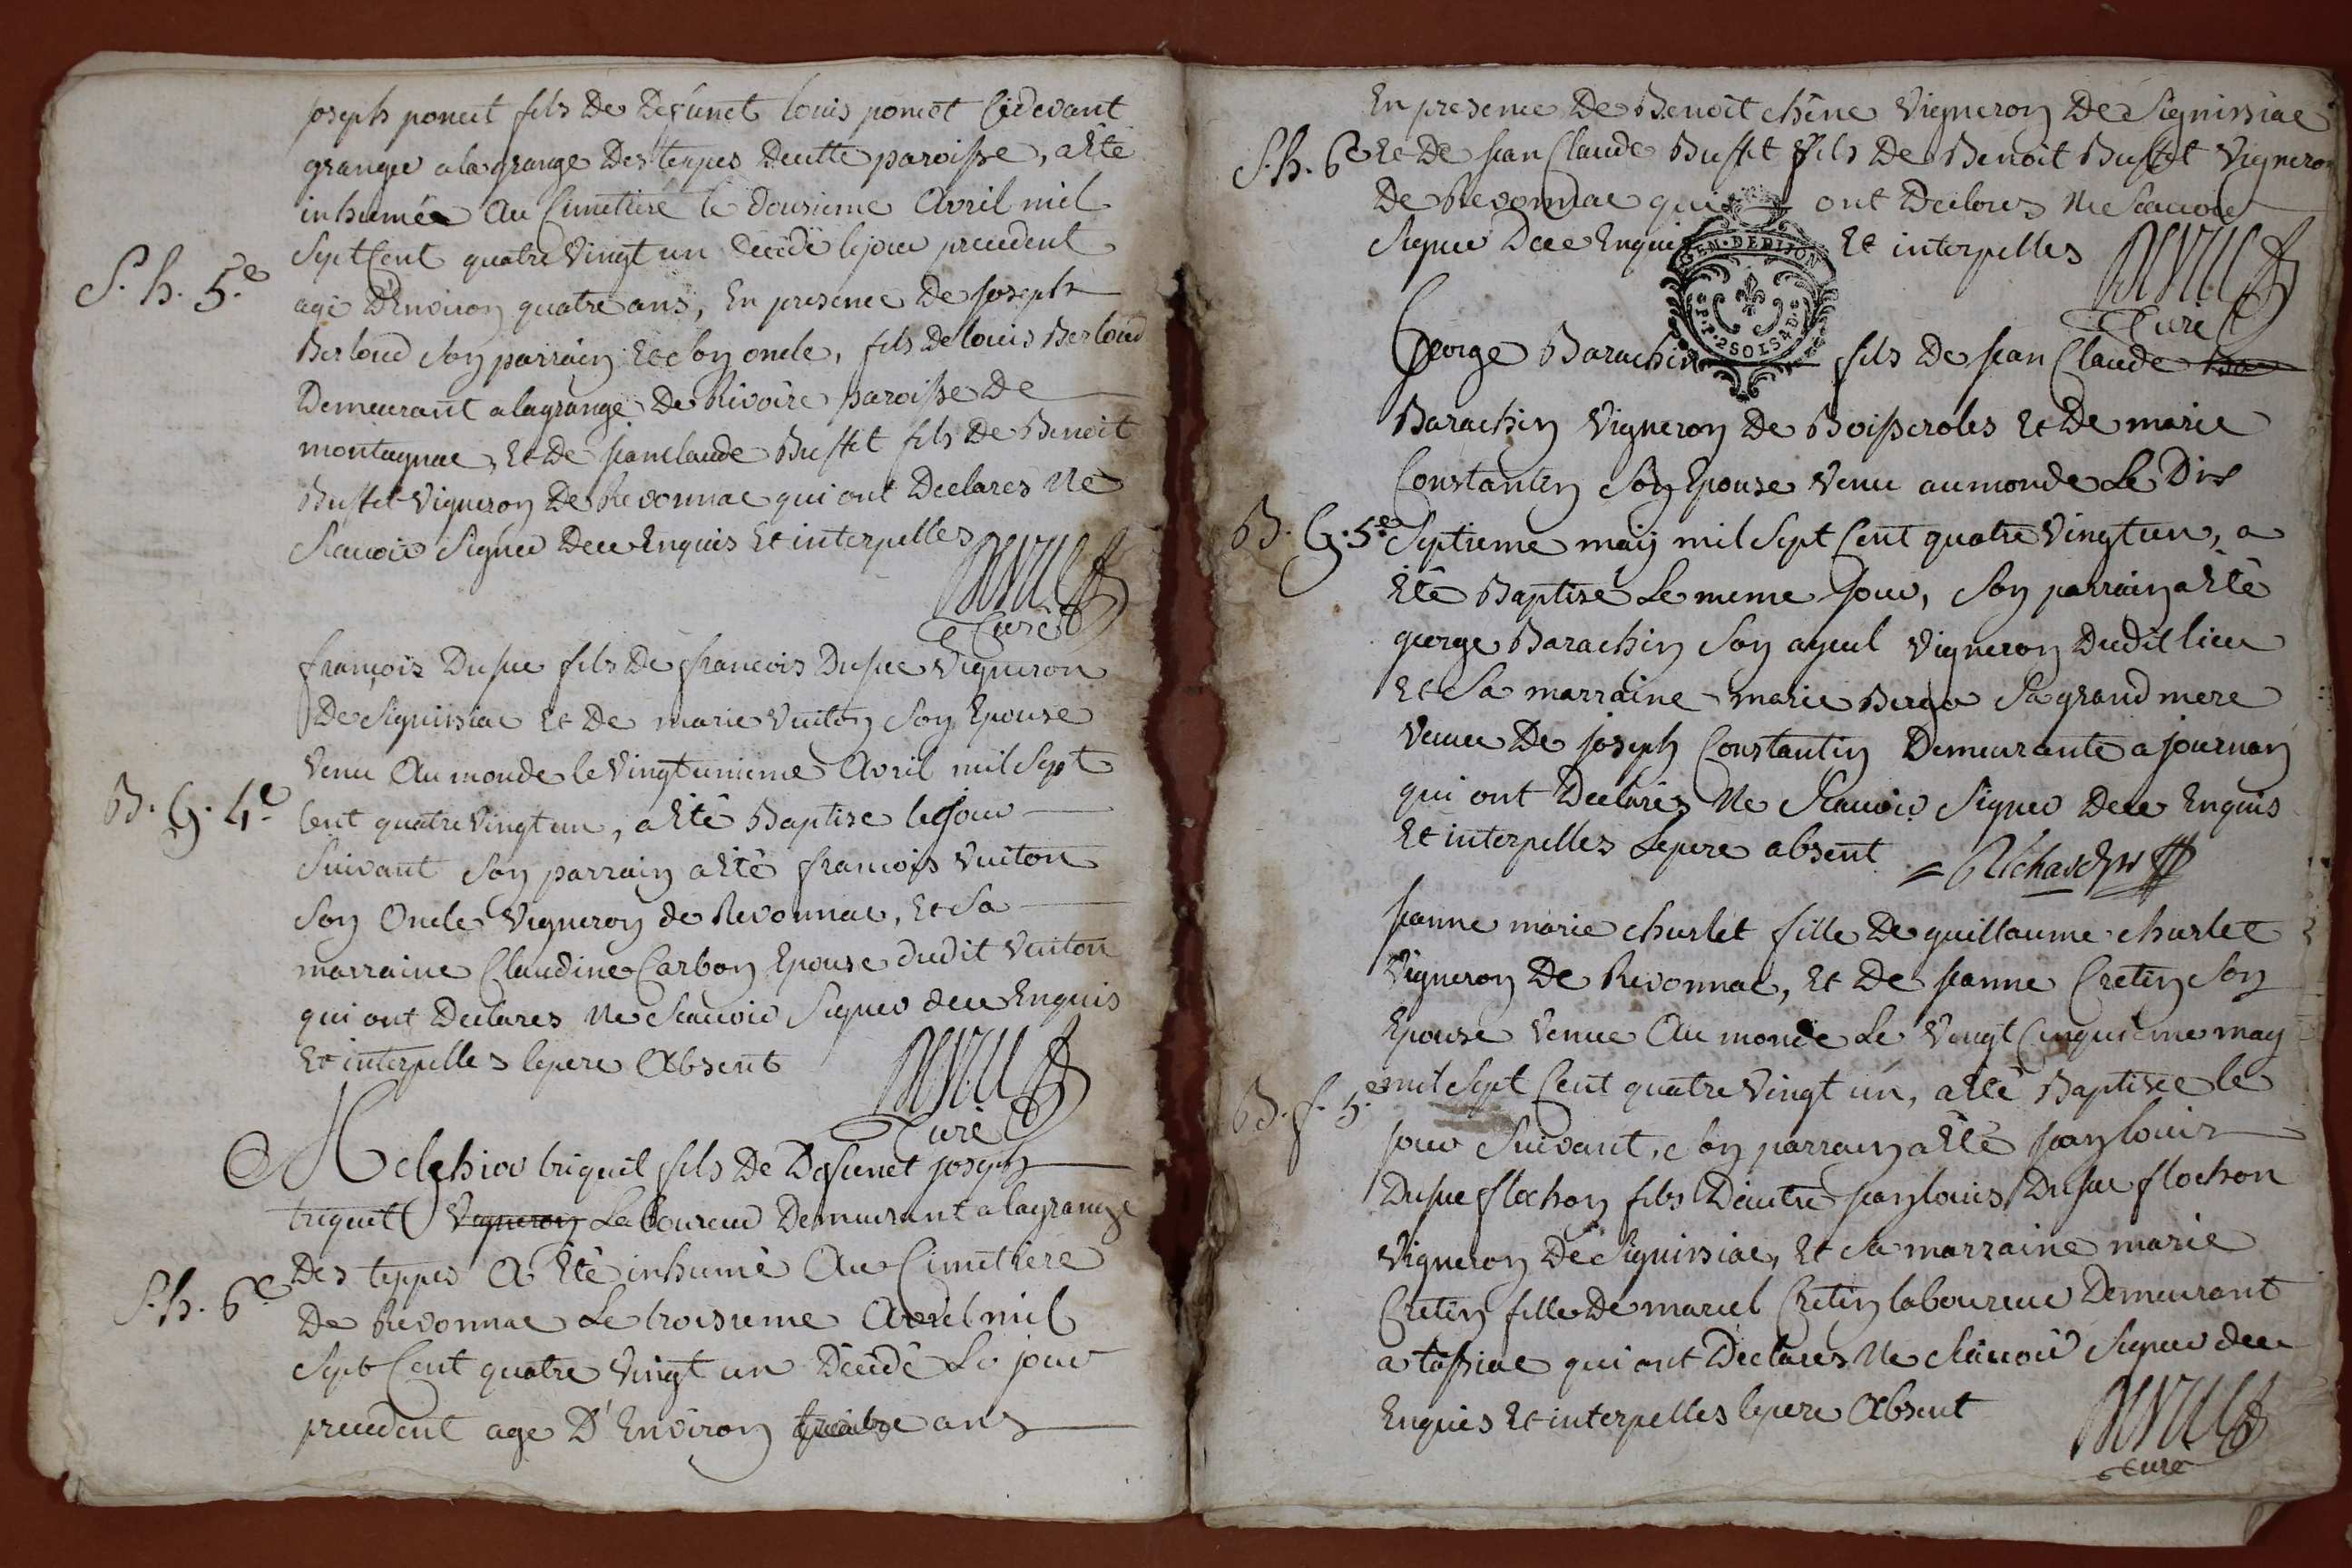 joseph poncet fils De Defunct louis poncet Cidevant
granger a la grange Des teppes De cette paroisse, a Eté
inhumé Au Cimetiere le dousieme Avril mil
Sept Cent quatre Vingt un décédé le jour precedent
S. h. 5.e
agé D'Environ quatre ans, En presence De joseph
Berloud Son parrain Et Son oncle, fils De louis Berloud
Demeurant a la grange De Rivoire paroisse De
montagnac, Et De jean claude Buffet fils De Benoit
Buffet Vigneron De Revonnac qui ont Declarés Ne
Scavoir Signer De ce Enquis Et interpelles
Curé
françois Dusuc fils De francois Dusuc Vigneron
De Signissiac Et De marie Vuiton Son Epouse
Venu Au monde le Vingt unieme Avril mil Sept
B. G. 4.e
Cent quatre Vingt un, a Eté Baptise le Jour
Suivant Son parrain a Eté francois Vuiton
Son Oncle Vigneron de Revonnac, Et Sa
marraine Claudine Carbon Epouse dudit Vuiton
qui ont Declares Ne Scavoir Signer de ce Enquis
Et interpelles le pere Absent
Curé
Melchior triquet fils De Defunct joseph
triquet Vigneron Laboureur Demeurant a la grange
Des teppes A Eté inhumé Au Cimetiere
S. h. 6.e
De Revonnac Le troisieme Avril mil
Sept Cent quatre Vingt un Décédé Le jour
precedent age D'Environ ans
En presence De Benoit chêne Vigneron De Signissiac
S. h. 6e
Et De jean Claude Buffet fils De Benoit Buffet Vigneron
De Revonnac qui ont Declares Ne Scavoir
Signer De ce Enquis Et interpelles
GEN. DE DIJON
2 SOLS 4 D.
Curé
George Barachin fils De jean Claude Ba
Barachin Vigneron De Boisseroles Et De marie
Constantin Son Epouse Venu au monde Le Dix
B. G. 5.e
Septieme may mil Sept Cent quatre Vingt un, a
Eté Baptisé Le meme Jour, Son parrain a Eté
george Barachin Son ayeul Vigneron Dudit lieu
Et Sa marraine marie Sa grand mere
Veuve De joseph Constantin Demeurante a journan
qui ont Declarés Ne Scavoir Signer De ce Enquis
Et interpelles Le pere absent
jeanne marie churlet fille De guillaume churlet
Vigneron De Revonnac, Et De jeanne Cretin Son
Epouse Venue Au monde Le Vingt Cinquieme may
B. f. 5.e
mil Sept Cent quatre Vingt un, a Eté Baptisée le
jour Suivant, Son parrain a Eté jean louis
Dusuc flochon fils D'autre jean louis Dusuc flochon
Vigneron De Signissiac, Et Sa marraine marie
Cretin fille De marcel Cretin laboureur Demeurant
a tossiac qui ont Declares Ne Scavoir Signer de ce
Enquis Et interpelles le pere Absent
Curé